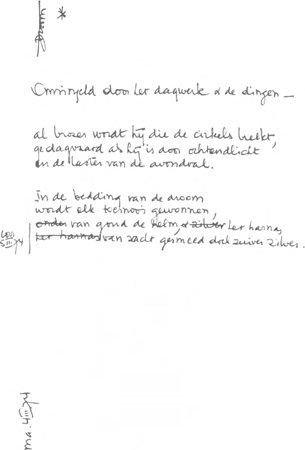 droom
*
Omringeld door het dagwerk & de dingen —
al brozer wordt hij die de cirkels heelt,
gedagvaard als hij is door ochtendlicht
en de laster van de avondval.
In de bedding van de droom
wordt elk toernooi gewonnen,
onder van goud de helm, & zilver het harnas
het harnas van zacht gesmeed doch zuiver zilver.
5 III 74
ma. 4 III 74